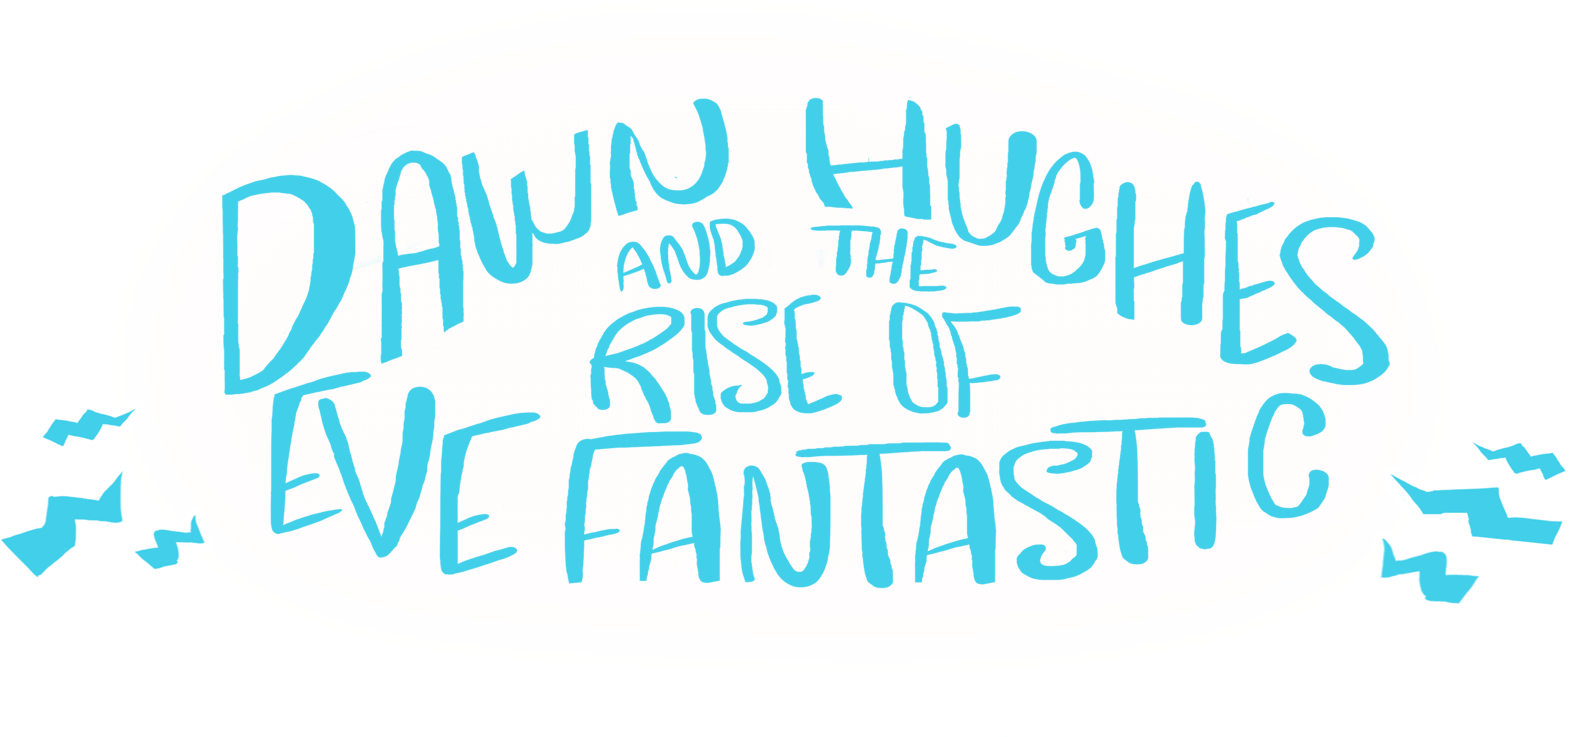 DAWN HUGHES
AND THE
RISE OF
EVE FANTASTIC